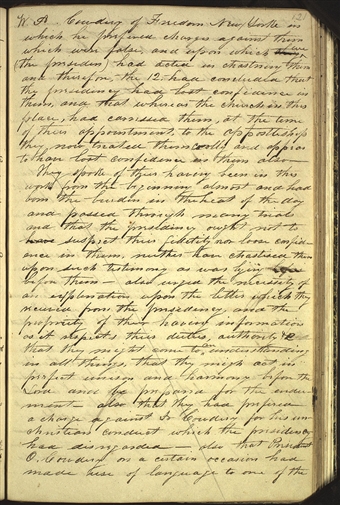 121
W. A. Cowdery of Freedom New York in
which he prefered charges against them
which were false, and upon which we
(the presidency) had acted in chastning them
and therefore, the 12. had concluded that
the presidency had lost confidence in
them, and that whereas the church in this
place, had caressed them, at the time
of their appointment, to the appostleship
they now treated them coolly and appear
to have lost confidence in them also—
They spoke of their having been in this
work from the beginning almost and had
born the burden in the heat of the day
and passed through many trials
and that the presidency ought not to
have suspect their fidelity nor loose confid-
ence in them, neither have chastised them
upon such testimony as was lying
before them— also urged the necessity of
an explanation upon the letter which they
received from the presidency, and the
propriety of their having information
as it respects their duties, authority &c
that they might come to, understanding
in all things, that they might act in
perfect unison and harmony before the
Lord and be prepared for the endu-
ment— also that they had prefered
a charge against Dr Cowdery for his un-
christian conduct which the presidency
had disregarded— also that President
O. Cowdery on a certain occasion had
made use of language to one of the